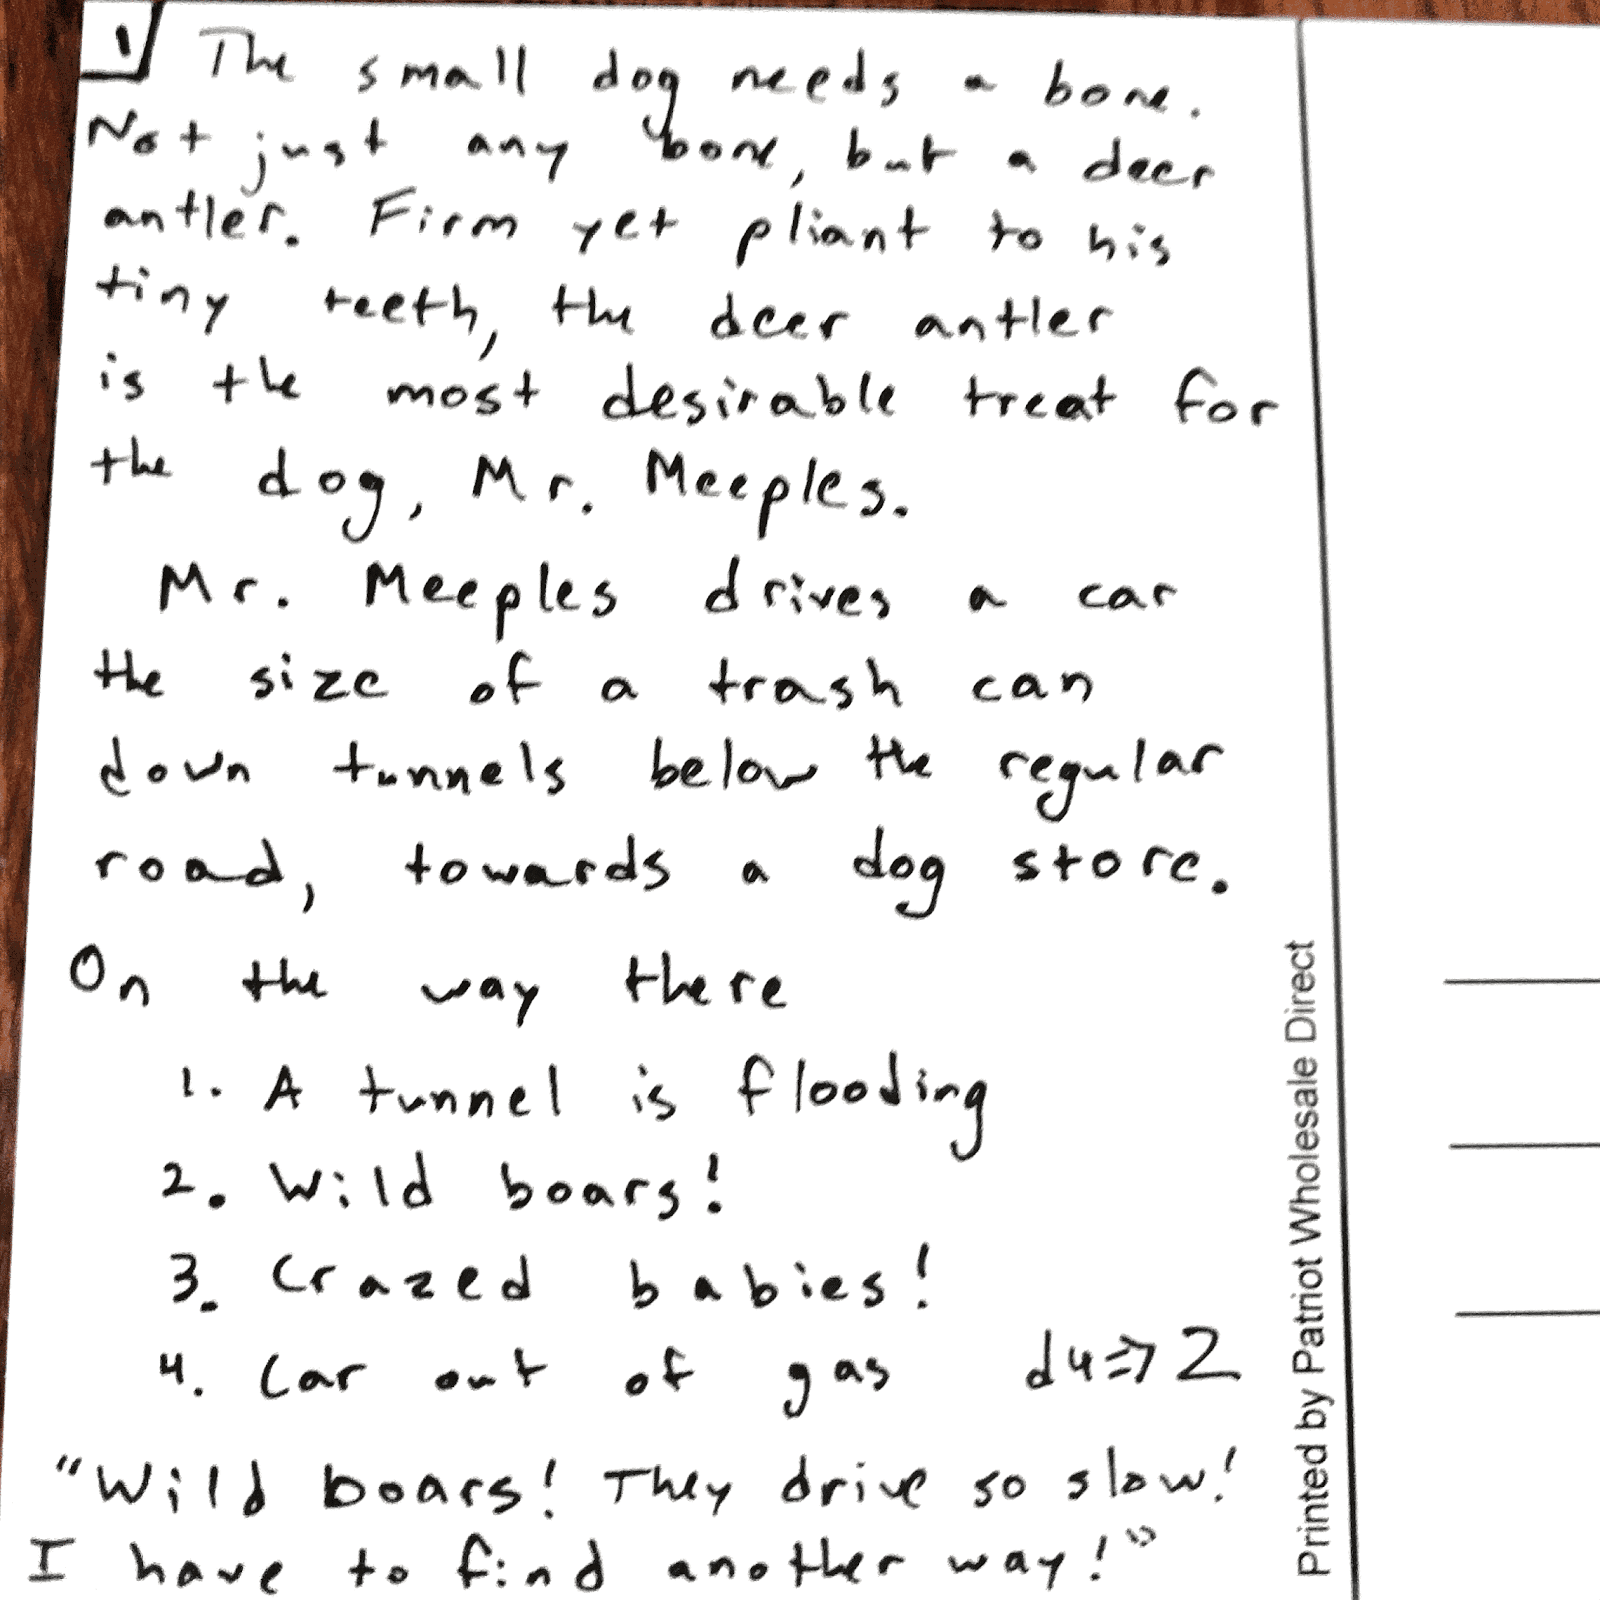 1 The small dog needs a bone.
Not just any bone, but a deer
antler. Firm yet pliant to his
tiny teeth, the deer antler
is the most desirable treat for
the dog, Mr. Meeples.
Mr. Meeples drives a car
the size of a trash can
down tunnels below the regular
road, towards a dog store.
On the way there
1. A tunnel is flooding
2. Wild boars!
3. Crazed babies!
4. Car out of gas d4⇒2
"Wild boars! They drive so slow!
I have to find another way!"
Printed by Patriot Wholesale Direct